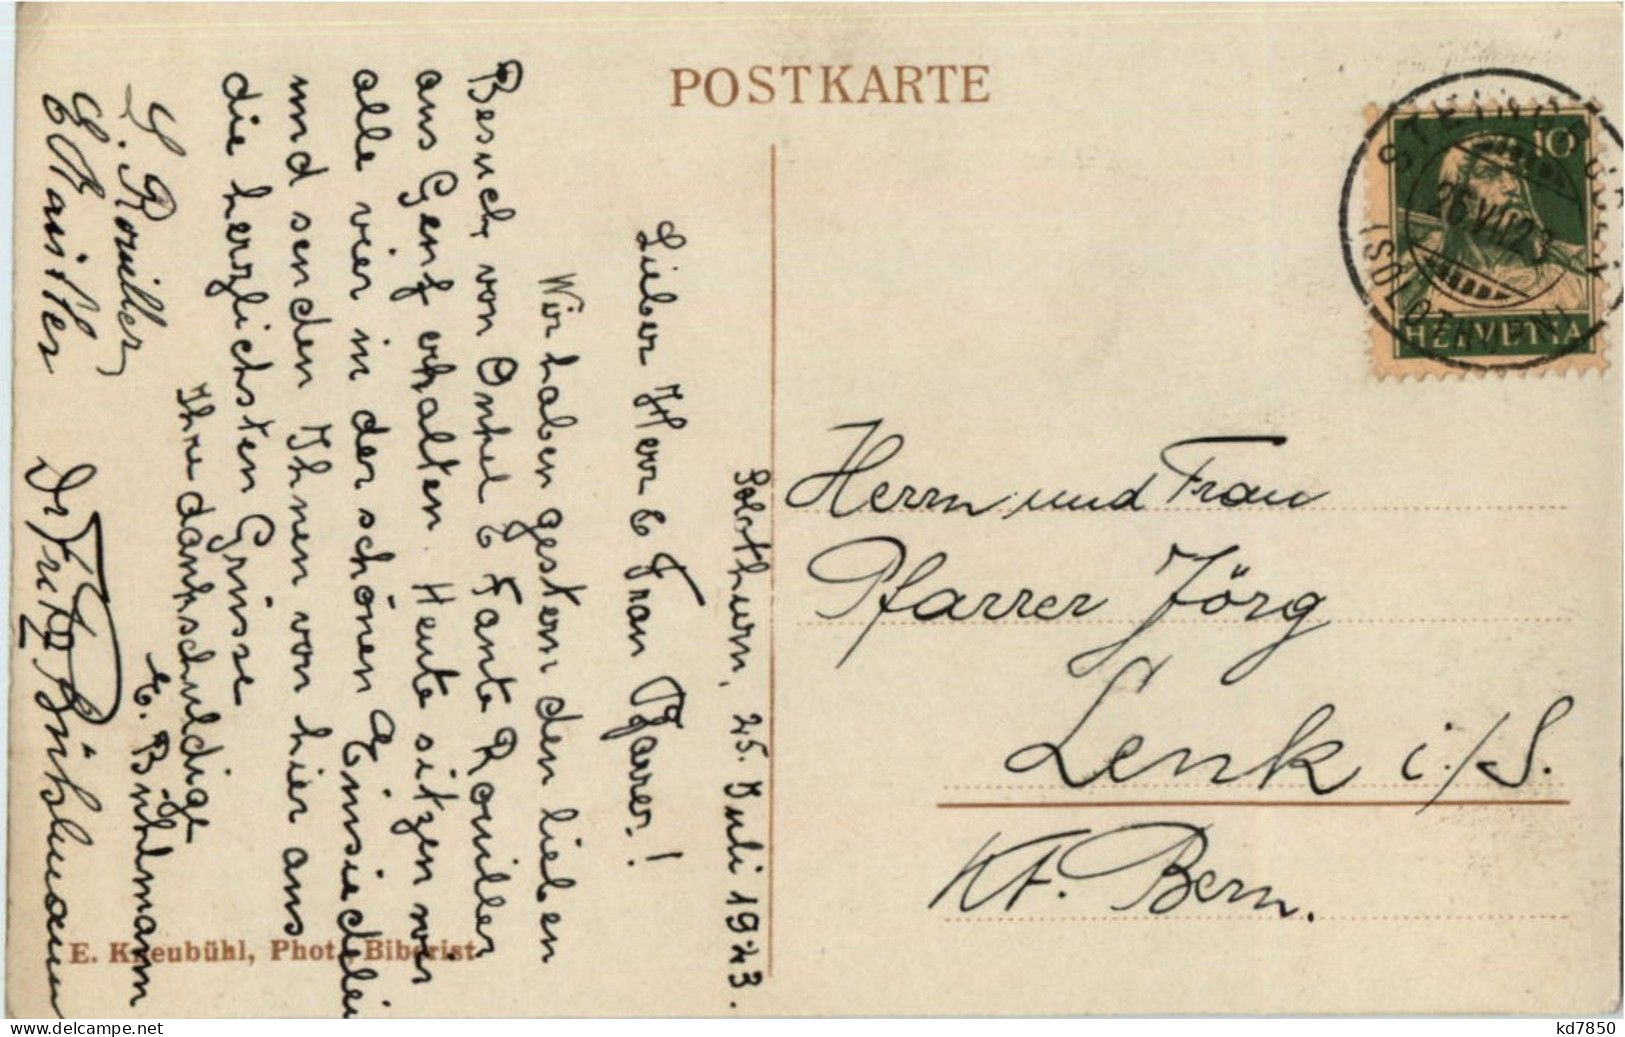 POSTKARTE
STEINGRUBEN
(SOLOTHURN)
26.VII.23
10
HELVETIA
Herrn und Frau
Pfarrer Jörg
Lenk i./S.
Kt. Bern.
Solothurn, 25. Juli 1923.
Lieber Herr & Frau Pfarrer!
Wir haben gestern den lieben
Besuch von Onkel & Tante Rouiller
aus Genf erhalten. Heute sitzen wir
alle vier in der schönen Einsiedelei
und senden Ihnen von hier aus
die herzlichsten Grüsse
Ihre dankschuldige
E. Bühlmann
L. Rouiller
Dr Fritz Bühlmann
E. Kneubühl, Phot., Biberist
delcampe.net
kd7850